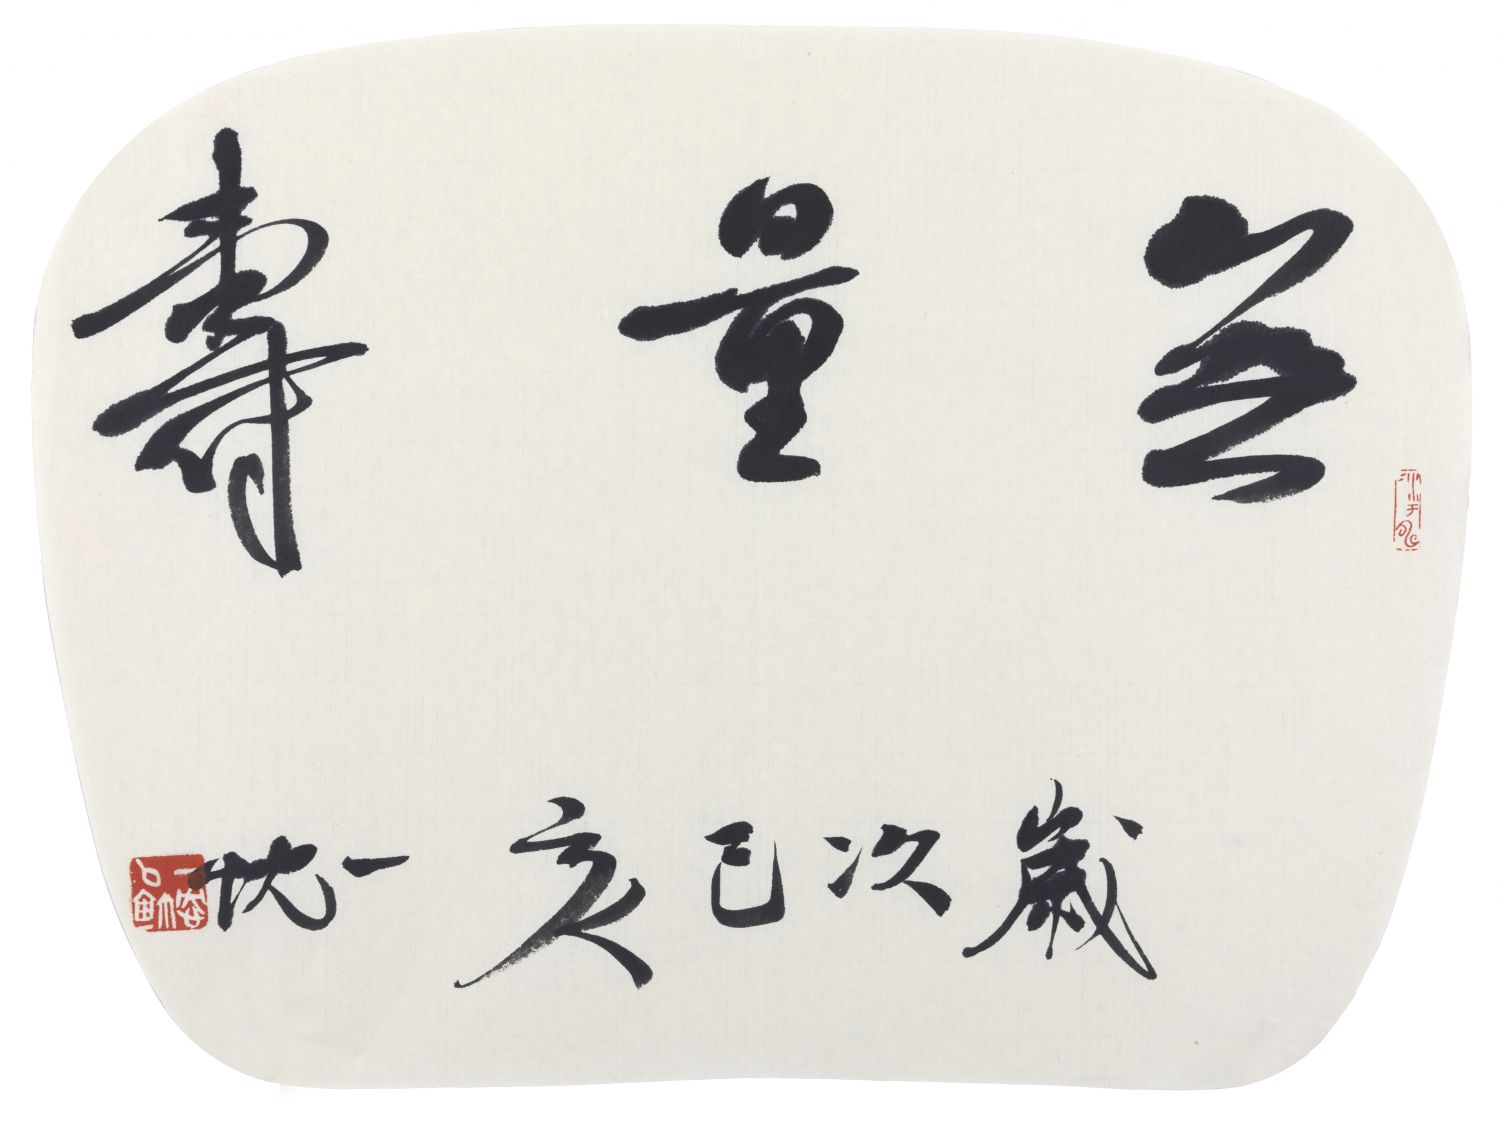 無量壽
歲次己亥一忱